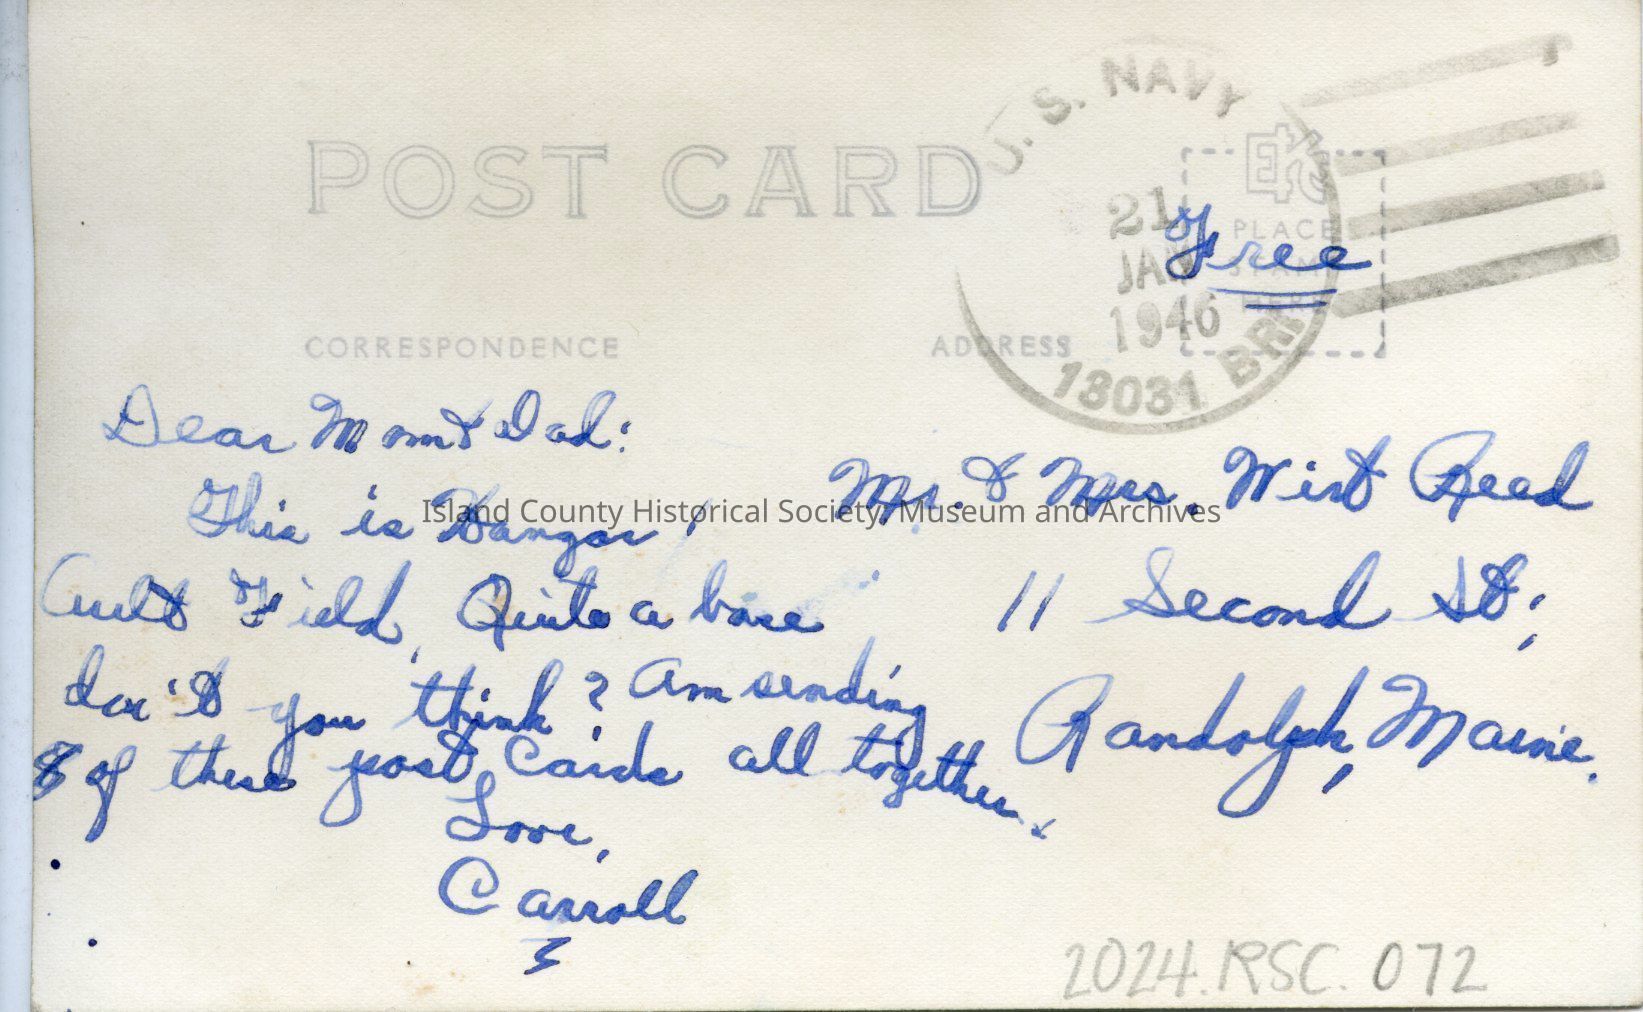 POST CARD
U. S. NAVY
21
JAN
1946
13031 BR
PLACE
STAMP
HERE
Free
CORRESPONDENCE
ADDRESS
Dear Mom & Dad:
This is Hangar 1
Ault Field, Quite a base
don't you think? Am sending
8 of these post cards all together.
Love,
Carroll
Mr. & Mrs. Wirt Reed
11 Second St;
Randolph, Maine.
Island County Historical Society, Museum and Archives
2024.RSC.072